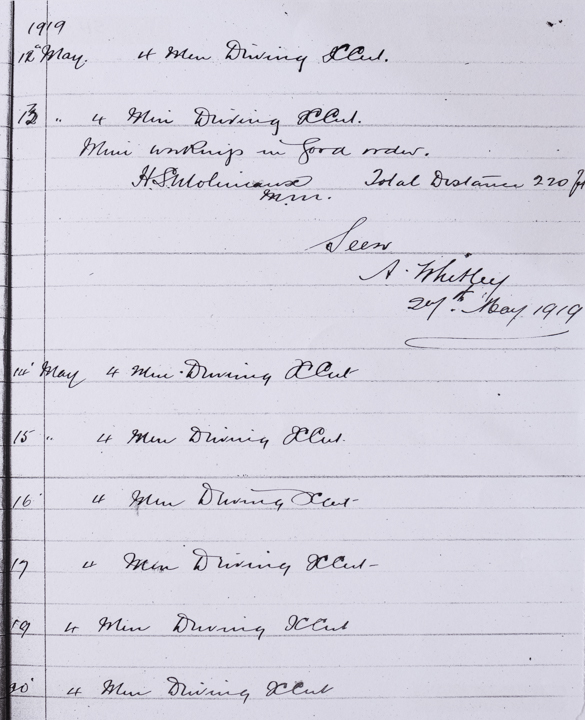 1919
12th May. 4 Men Driving XCut.
13 " 4 Men Driving XCut.
Mine workings in good order.
H S Molineaux Total Distance 220 ft
M.M.
Seen
A. Whitley
27th May 1919
14th May 4 Men Driving XCut
15 " 4 Men Driving XCut.
16 4 Men Driving XCut
17 4 Men Driving XCut
19 4 Men Driving XCut
20 4 Men Driving XCut